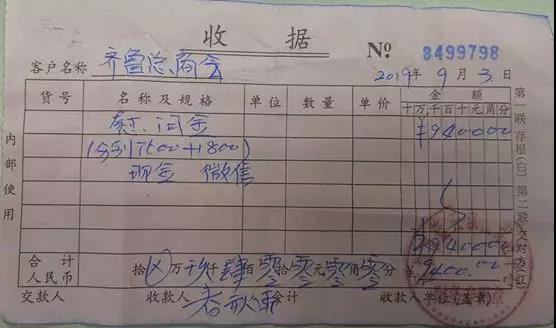 收 据
№ 8499798
客户名称 齐鲁总商会
2019年 9月 3日
货号 名称及规格 单位 数量 单价 金额
十万千百十元角分
慰问金 ¥940000
(分别7500+1800)
现金 微信
¥940000
合计人民币 拾⊗万 仟肆百零拾零元零角零分 ¥9400.00
交款人 收款人 会计 收款单位(盖章)
内部使用
第一联存根(白) 第二联交对方(红)